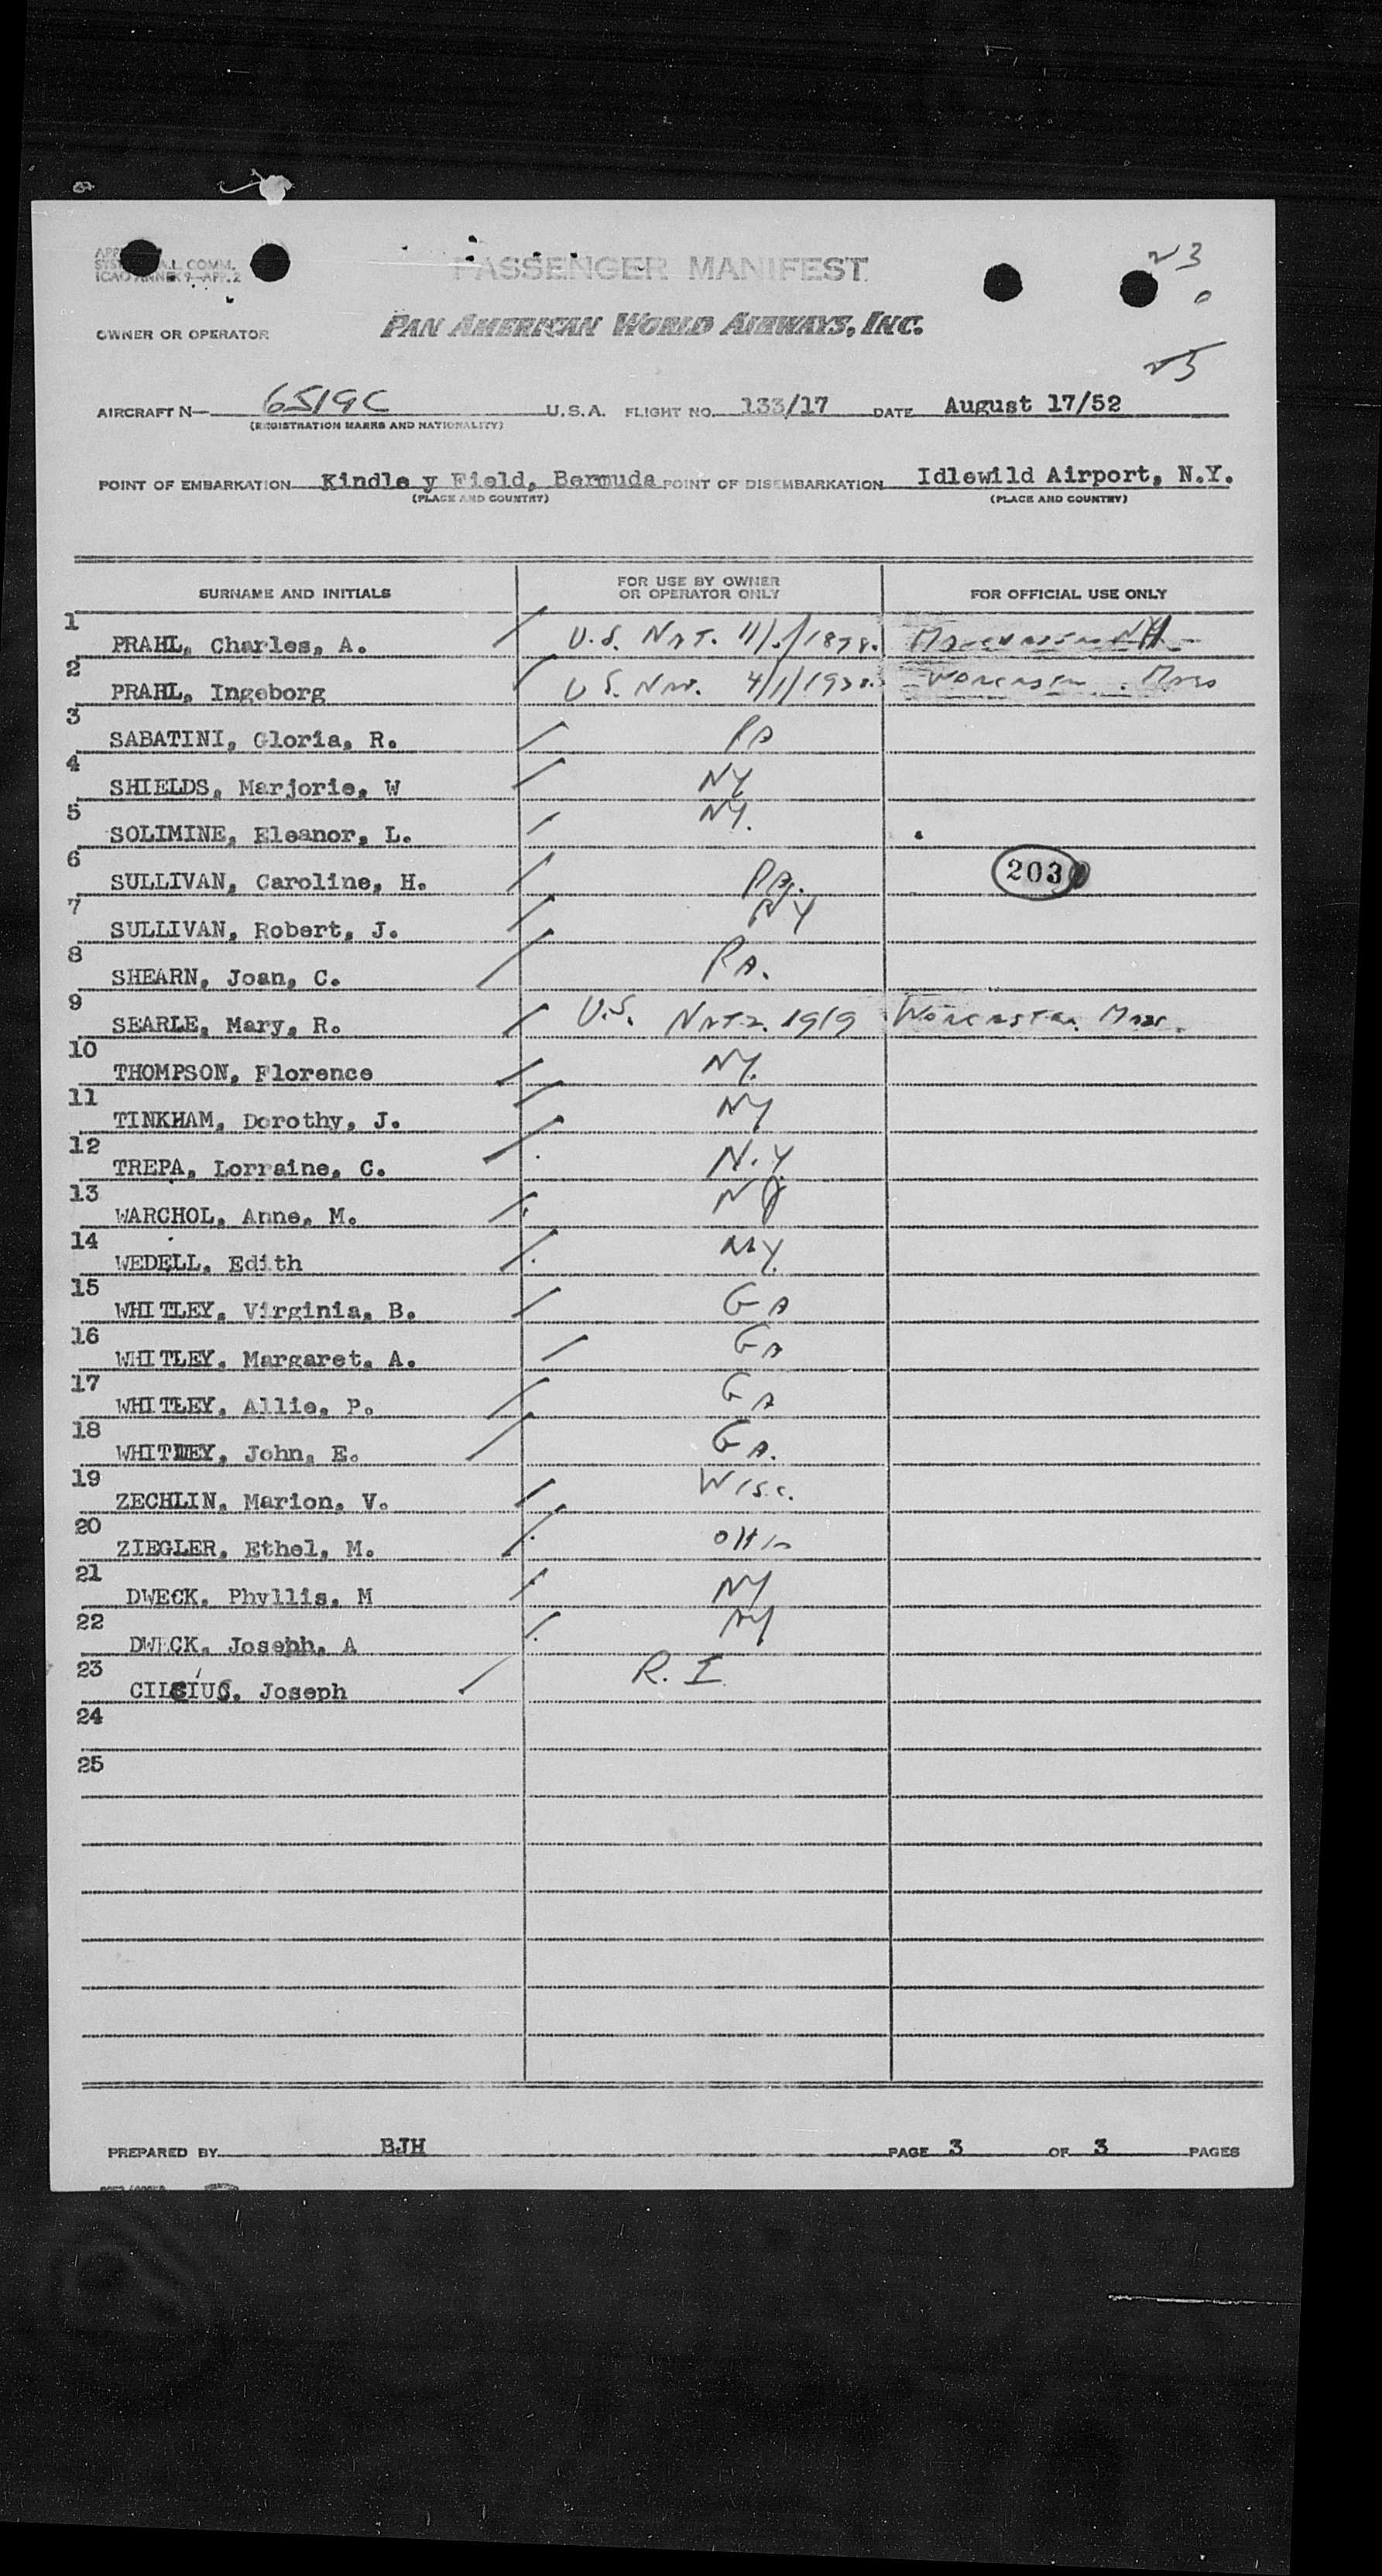 23
0
23
PASSENGER MANIFEST
ICAO ANNEX 9-APP. 2
OWNER OR OPERATOR PAN AMERICAN WORLD AIRWAYS, INC.
AIRCRAFT N— 6519C U.S.A. FLIGHT NO. 133/17 DATE August 17/52
(REGISTRATION MARKS AND NATIONALITY)
POINT OF EMBARKATION Kindle y Field, Bermuda POINT OF DISEMBARKATION Idlewild Airport, N.Y.
(PLACE AND COUNTRY) (PLACE AND COUNTRY)
SURNAME AND INITIALS FOR USE BY OWNER OR OPERATOR ONLY FOR OFFICIAL USE ONLY
1 PRAHL, Charles, A. U.S. NAT. 1898. NH
2 PRAHL, Ingeborg U S. Nat. 4/1/ Worcester Mass
3 SABATINI, Gloria, R. PA
4 SHIELDS, Marjorie, W NY
5 SOLIMINE, Eleanor, L. NY.
6 SULLIVAN, Caroline, H. PA. 203
7 SULLIVAN, Robert, J. NY
8 SHEARN, Joan, C. PA.
9 SEARLE, Mary, R. U.S. NATZ. 1919 Worcester Mass.
10 THOMPSON, Florence NY.
11 TINKHAM, Dorothy, J. NY
12 TREPA, Lorraine, C. N.Y
13 WARCHOL, Anne, M. NJ
14 WEDELL, Edith NY.
15 WHITLEY, Virginia, B. GA
16 WHITLEY, Margaret, A. GA
17 WHITLEY, Allie, P. GA
18 WHITLEY, John, E. GA.
19 ZECHLIN, Marion, V. Wisc.
20 ZIEGLER, Ethel, M. OHIO
21 DWECK, Phyllis, M NY
22 DWECK, Joseph, A NY
23 Joseph R.I
24
25
PREPARED BY BJH PAGE 3 OF 3 PAGES